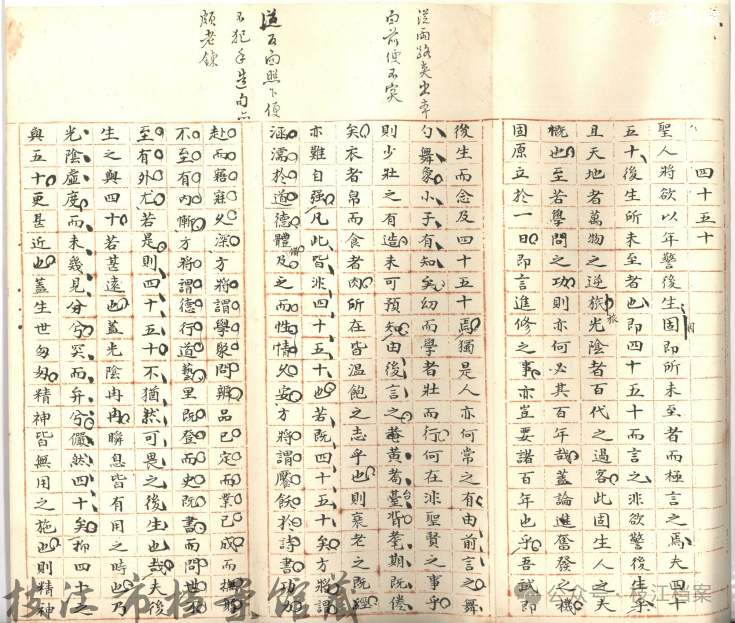 枝江档案
四十五十
聖人將欲以年警後生固即所未至者而極言之焉夫四十
因
五十後生所未至者也即四十五十而言之非欲警後生乎
且天地者萬物之逆旅光陰者百代之過客此固生人之大
旅
概也至若學問之功則亦何必其百年哉蓋論進奮發之機
固原立於一日即言進修之事亦豈要諸百年也乎吾試即
從兩路夾出本
面前便不突
後生而念及四十五十焉獨是人亦何常之有由前言之舞
勺舞象小子有知矣幼而學者壯而行何在非聖賢之事乎
則少壯之有造未可預知由後言之黃者臺背耄期既倦
台
矣衣者帛而食者肉所在皆温飽之志乎也則衰老之既經
亦難自强凡此皆非四十五十也若既四十五十矣方將謂
從反面照下便
不犯手是句亦
頗老鍊
涵濡於道德體及之而性情久安方將謂饜飫於詩書功力
備
赴而寤寐久深方將謂學聚問辨品已定而業已成而撫躬
不至有內慚方將謂德行道藝里既登而史既書而問世不
至有外尤若是則四十五十不猶然可畏之後生也哉夫後
生之與四十若甚遠也蓋光陰冉冉瞬息皆有用之時也乃
光陰虛度而未幾見分兮突而弁兮儼然四十矣抑四十之
與五十更甚近也蓋生世匆匆精神皆無用之施也則精神
枝江市档案馆藏
公众号·枝江档案